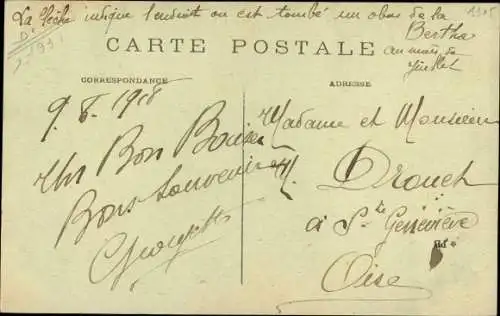 La flèche indique l'endroit ou est tombé un obus de la
Bertha
au mois de
juillet
CARTE POSTALE
CORRESPONDANCE
ADRESSE
9.8.1918
Un Bon Baiser
Bons Souvenirs
Georgette
Madame et Monsieur
M. Drouet
à Ste Geneviève
Oise